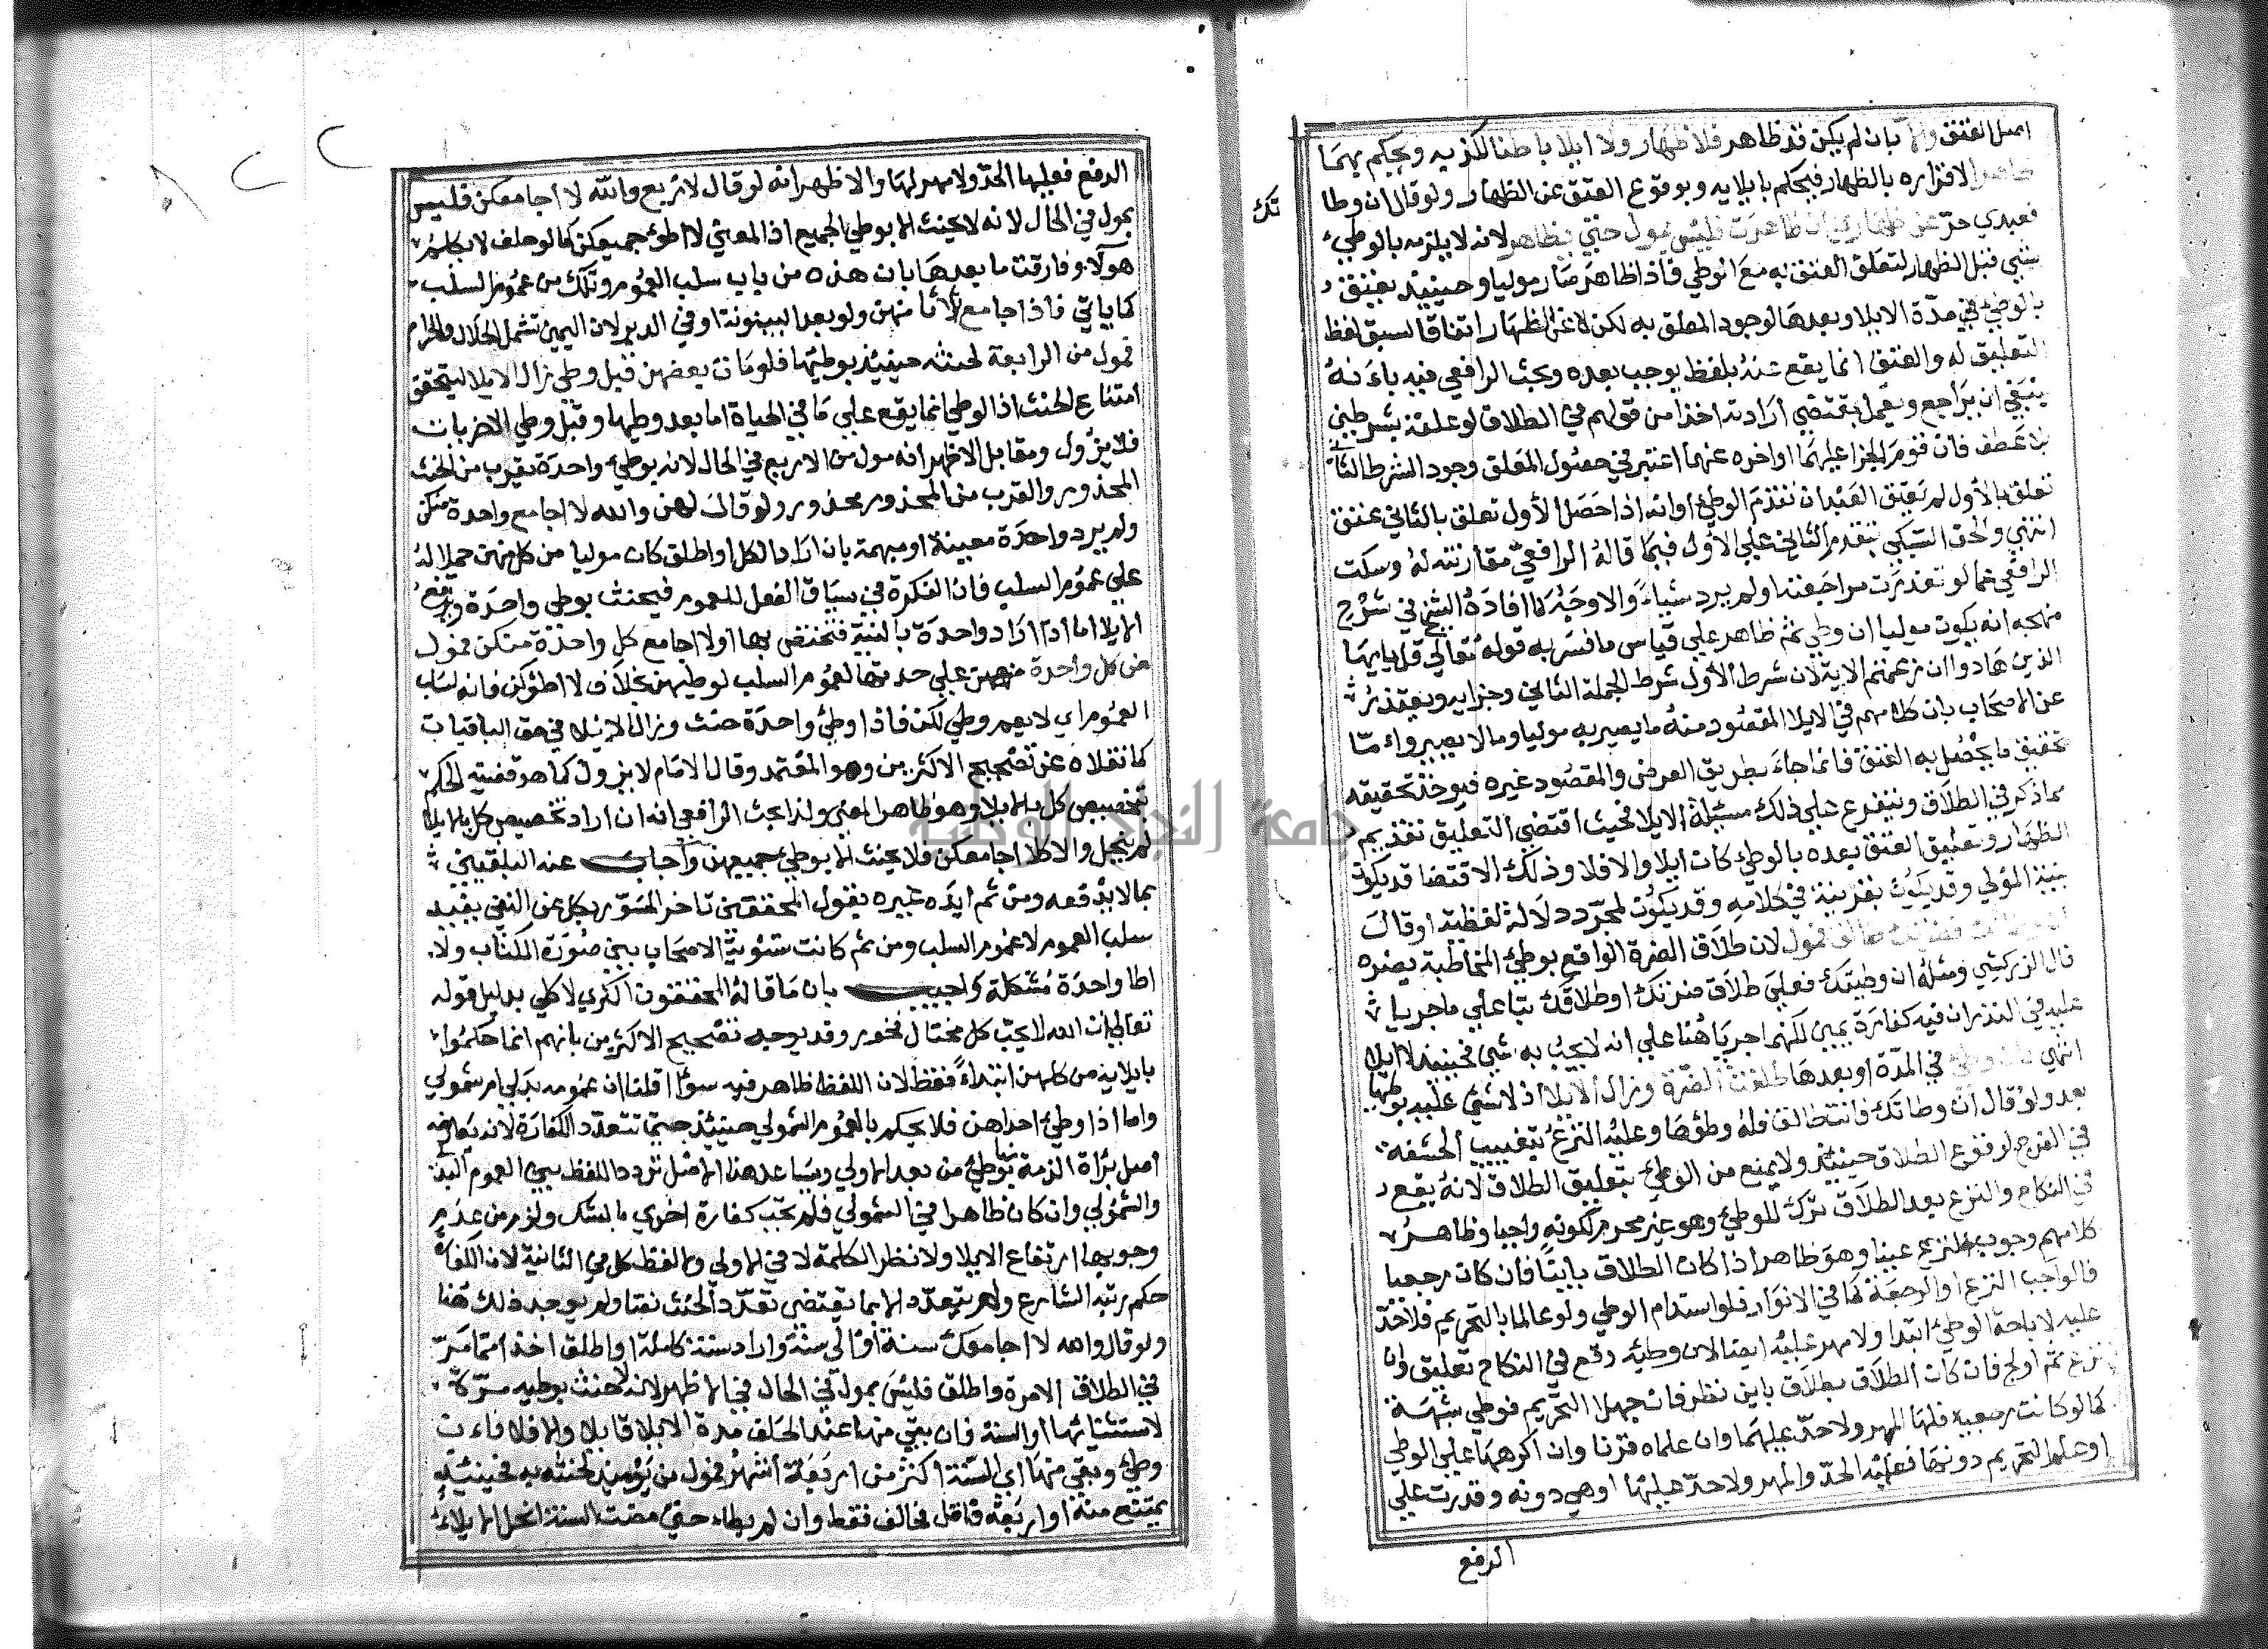 اصل العتق والا بان لم يكن قد ظاهر فلا ظهار ولا ايلا باطنا لكذبه ويحكم بهما
ظاهرا لاقراره بالظهار فيحكم بايلايه وبوقوع العتق عن الظهار ولو قال ان وطا
تك
فعبدي حر عن ظهاري ان ظاهرت فليس بمول حتي يظاهر لانه لا يلزمه بالوطيء
شي قبل الظهار لتعلق العتق به مع الوطي فاذا ظاهر صار موليا وحينيذ يعتق
بالوطيء في مدة الايلا وبعدها لوجود المعلق به لكن لا عن الظهار اتفاقا لسبق لفظ
التعليق له والعتق انما يقع عنه بلفظ يوجب بعده وبحث الرافعي فيه بانه
ينبغي ان يراجع ويعمل بمقتضي ارادته اخذا من قولهم في الطلاق لو علقه بشرطين
بلا عطف فان قدم الجزا عليهما او اخره عنهما اعتبر في حصول المعلق وجود الشرط الثاني
تعلق بالاول لم يعتق العبد ان تقدم الوطيء او انه اذا حصل الاول تعلق بالثاني عتق
انتهي والحق السبكي بتقدم الثاني علي الاول فيما قاله الرافعي مقارنته له وسكت
الرافعي عما لو تعذرت مراجعته او لم يرد شيا والاوجه كما افاده الشيخ في شرح
منهجه انه يكون موليا ان وطي ثم ظاهر علي قياس ما فسر به قوله تعالي قل يا ايها
الذين هادوا ان زعمتم الاية لان شرط الاول شرط لجملة الثاني وجزايه ويعتذر
عن الاصحاب بان كلامهم في الايلا المقصود منه ما يصير به موليا وما لا يصير واما
تحقيق ما يحصل به العتق فانما جاء بطريق العرض والمقصود غيره فيوخذ تحقيقه
مما ذكر في الطلاق ويتفرع علي ذلك مسئلة الايلا فحيث اقتضي التعليق تقديم
الظهار وتعليق العتق بعده بالوطيء كان ايلا والا فلا وذلك الاقتضا قد يكون
بنية المولي وقد يكون بقرينة في كلامه وقد يكون لمجرد دلالة لفظية او قال
ان وطئت فضرتك طالق فمول لان طلاق الضرة الواقع بوطيء المخاطبة يضره
قال الزركشي ومثله ان وطيتك فعلي طلاق ضرتك او طلاقك بنا علي ما جريا
عليه في النذر ان فيه كفارة يمين لكنهما جريا هنا علي انه لا يجب به شي فحينيذ لا ايلا
انتهي فان وطيء في المدة او بعدها طلقت الضرة وزال الايلا اذ لا شي عليه بوطيها
بعد ولو قال ان وطاتك فانت طالق فله وطوها وعليه النزع بتغييب الحشفة
في الفرج لوقوع الطلاق حينيذ ولا يمنع من الوطيء بتعليق الطلاق لانه يقع
في النكاح والنزع بعد الطلاق ترك للوطيء وهو غير محرم لكونه واجبا وظاهر
كلامهم وجوب النزع عينا وهو ظاهر اذا كان الطلاق باينا فان كان رجعيا
فالواجب النزع او الرجعة كما في الانوار فلو استدام الوطي ولو عالما بالتحريم فلا حد
عليه لاباحة الوطيء ابتدا ولا مهر عليه ايضا لان وطيه وقع في النكاح تعليق وان
نزع ثم اولج فان كان الطلاق بطلاق باين نظر فان جهلا التحريم فوطي شبهة
كما لو كانت رجعية فلها المهر ولا حد عليهما وان علماه فزنا وان اكرهها علي الوطي
او علم التحريم دونها فعليه الحد والمهر ولا حد عليها او هي دونه وقدرت علي
الرفع
الدفع فعليها الحد ولا مهر لها والاظهر انه لو قال لاربع والله لا اجامعكن فليس
بمول في الحال لانه لا يحنث الا بوطي الجميع اذ المعني لا اطوء جميعكن كما لو حلف لا يكلم
هولاء وفارقت ما بعدها بان هذه من باب سلب العموم وتلك من عموم السلب
كما ياتي فاذا جامع ثلاثا منهن ولو بعد البينونة او في الدبر لان اليمين تشمل الحلال والحرام
فمول من الرابعة لحنثه حينيذ بوطيها فلو مات بعضهن قبل وطي زال الايلا لتحقق
امتناع الحنث اذ الوطي انما يقع علي ما في الحياة اما بعد وطيها وقبل وطي الاخريات
فلا يزول ومقابل الاظهر انه مول من الاربع في الحال لانه بوطيء واحدة يقرب من الحنث
المحذور والقرب من المحذور محذور ولو قال لهن والله لا اجامع واحدة منكن
ولم يرد واحدة معينة او مبهمة بان اراد الكل او اطلق كان موليا من كل منهن حملا له
علي عموم السلب فان النكرة في سياق الفعل للعموم فيحنث بوطي واحدة ويرتفع
الايلا اما اذا اراد واحدة بالنية فتختص بها او لا اجامع كل واحدة منكن فمول
من كل واحدة منهن علي حدتها لعموم السلب لوطيهن بخلاف لا اطوكن فانه لسلب
العموم اي لا يعم وطي لكن فاذا وطيء واحدة حنث وزال الايلا في حق الباقيات
كما نقلاه عن تصحيح الاكثرين وهو المعتمد وقال الامام لا يزول كما هو قضية الحكم
بتخصيص كل بالايلا وهو ظاهر المعني ولذا بحث الرافعي انه ان اراد تخصيص كل بالايلا
لم ينحل والا كلا اجامعكن فلا يحنث الا بوطيء جميعهن واجاب عنه البلقيني
بما لا يدفعه ومن ثم ايده غيره بقول المحققين تاخر المسور بكل عن النفي يفيد
سلب العموم لا عموم السلب ومن ثم كانت تسوية الاصحاب بين صورة الكتاب ولا
اطا واحدة مشكلة واجيب بان ما قاله المحققون اكثري لا كلي بدليل قوله
تعالي ان الله لا يحب كل مختال فخور وقد يوجه تصحيح الاكثرين بانهم انما حكموا
بايلايه من كلهن ابتداء فقط لان اللفظ ظاهر فيه سوا اقلنا ان عمومه بدلي ام شمولي
واما اذا وطيء احداهن فلا يحكم بالعموم الشمولي حينيذ حتي تتعدد الكفارة لانه يعارضه
اصل براة الذمة بوطيء من بعد الاولي ويساعد هذا الاصل تردد اللفظ بين العموم البدلي
والشمولي وان كان ظاهرا في الشمولي فلم تجب كفارة اخري بالشك ولزم من عدم
وجوبها ارتفاع الايلا ولا نظر لكلمة لا في الاولي ولا لفظ كل في الثانية لان الكفارة
حكم رتبه الشارع ولم يتعدد الا بما يقتضي تعدد الحنث نصا ولم يوجد ذلك هنا
ولو قال والله لا اجامعك سنة او الي سنة واراد سنة كاملة او اطلق اخذا مما مر
في الطلاق الا مرة واطلق فليس بمول في الحال في الاظهر لانه لا يحنث بوطيه مرة
لاستثنائها او السنة فان بقي منها عند الحلف مدة الايلا فايلا والا فلا فان
وطيء وبقي منها اي السنة اكثر من اربعة اشهر فمول من يوميذ لحنثه به فحينيذ
يمتنع منه او اربعة فاقل فحالف فقط وان لم يطاء حتي مضت السنة انحل الايلاء
جامعة النجاح الوطنية